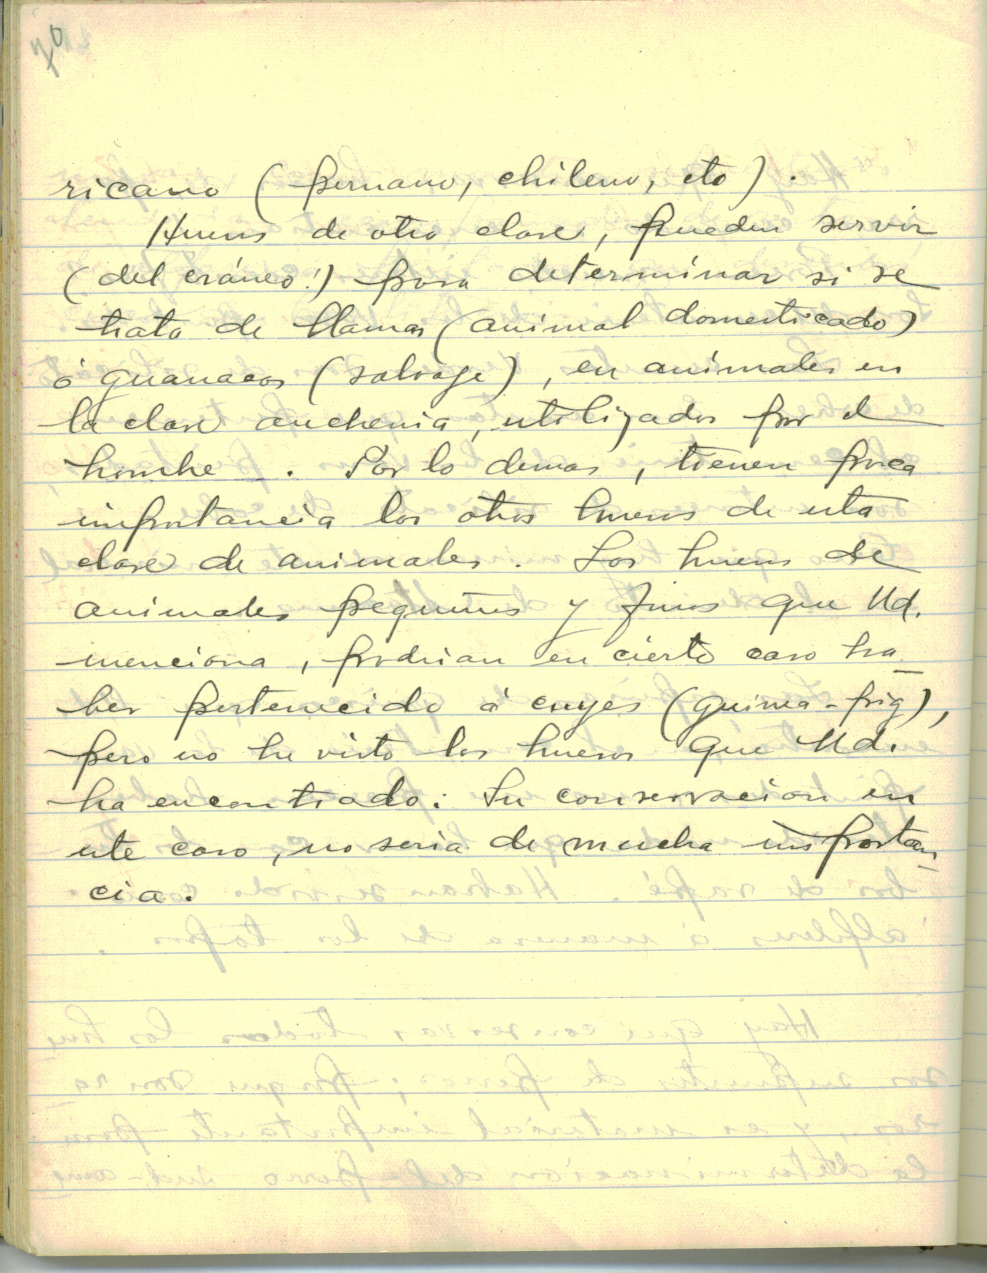 70
ricano (peruano, chileno, etc).
Huesos de otra clase, pueden servir
(del cráneo!) para determinar si se
trata de llamas (animal domesticado)
ó guanacos (salvaje), en animales en
la clase auchenia, utilizados por el
hombre. Por lo demas, tienen poca
importancia los otros huesos de esta
clase de animales. Los huesos de
animales pequeños y finos que Ud.
menciona, podrian en cierto caso ha-
ber pertenecido á cuyes (guinea-pig),
pero no he visto los huesos que Ud.
ha encontrado: Su conservacion en
este caso, no seria de mucha importan-
cia.